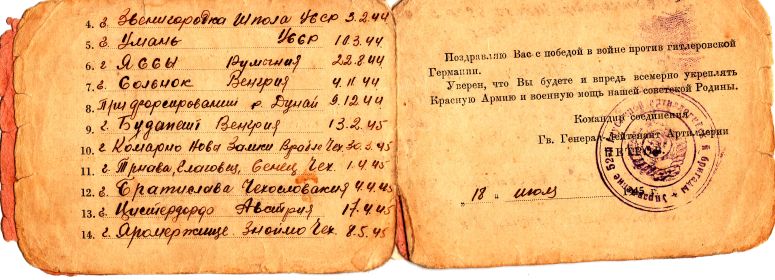 4. г. Звенигородка Шпола Усср 9.2.44
5. г. Умань Усср 10.3.44
6. г. Яссы Румыния 22.8.44
7. г. Сольнок Венгрия 4.11.44
8. При форсировании р. Дунай 9.12.44
9. г. Будапешт Венгрия 13.2.45
10. г. Комарно Нова Замки Врабле Чех. 30.3.45
11. г. Трнава, Глаговец, Сенец Чех. 1.4.45
12. г. Братислава Чехословакия 4.4.45
13. г. Цистерсдорф Австрия 17.4.45
14. г. Яромержице. Зноймо Чех. 8.5.45
Поздравляю Вас с победой в войне против гитлеровской
Германии.
Уверен, что Вы будете и впредь всемерно укреплять
Красную Армию и военную мощь нашей советской Родины.
Командир соединения
Гв. Генерал-Лейтенант Артиллерии
ПЕТРОВ
„18“ июля 1945 г.
Управление бригады